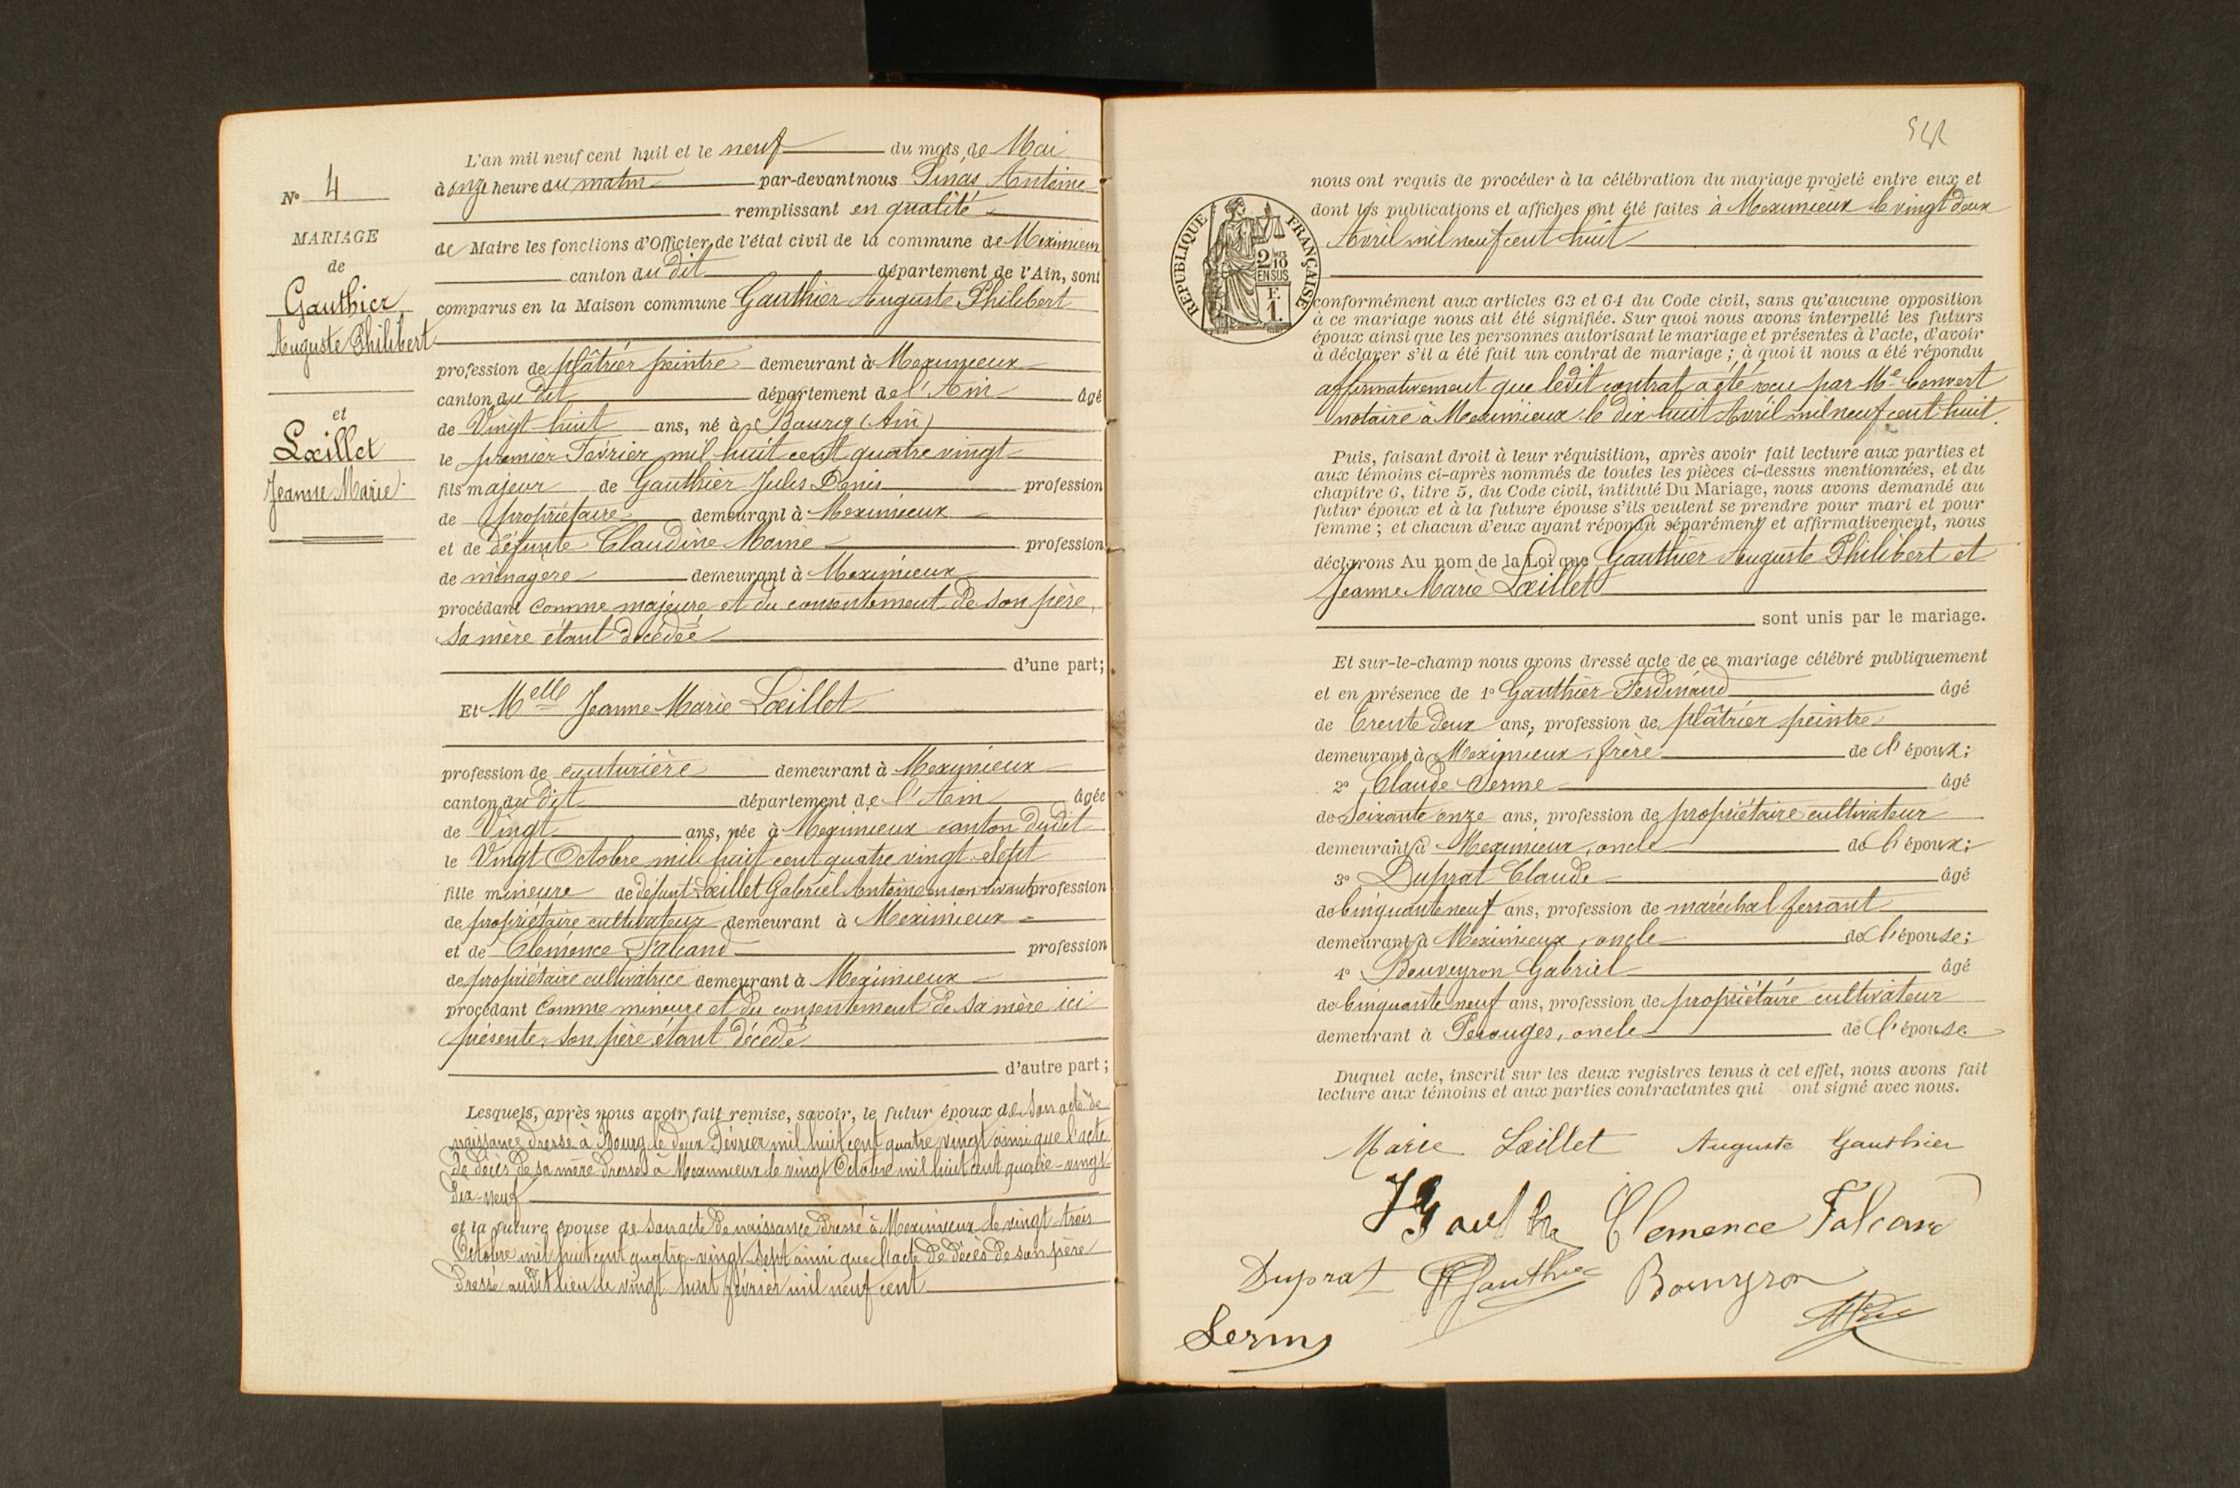 N° 4
MARIAGE
de
Gauthier
Auguste Philibert
et
Lœillet
Jeanne Marie
L'an mil neuf cent huit et le neuf du mois de Mai
à onze heure du matin par-devant nous Antoine
remplissant en qualité
de Maire les fonctions d'Officier de l'état civil de la commune de Meximieux
canton du dit département de l'Ain, sont
comparus en la Maison commune Gauthier Auguste Philibert
profession de plâtrier peintre demeurant à Meximieux
canton du dit département de l'Ain âgé
de Vingt huit ans, né à Bourg (Ain)
le premier Février mil huit cent quatre vingt
fils majeur de Gauthier Jules Denis profession
de propriétaire demeurant à Meximieux
et de défunte Claudine profession
de ménagère demeurant à Meximieux
procédant comme majeure et du consentement de son père
sa mère étant décédée
d'une part;
Et Melle Jeanne Marie Lœillet
profession de couturière demeurant à Meximieux
canton du dit département de l'Ain âgée
de Vingt ans, née à Meximieux canton dudit
le Vingt Octobre mil huit cent quatre vingt sept
fille mineure de défunt Lœillet Gabriel Antoine en son vivant profession
de propriétaire cultivateur demeurant à Meximieux
et de Clémence Falcand profession
de propriétaire cultivatrice demeurant à Meximieux
procédant comme mineure et du consentement de sa mère ici
présente, son père étant décédé
d'autre part;
Lesquels, après nous avoir fait remise, savoir, le futur époux de son acte de
naissance dressé à Bourg le deux Février mil huit cent quatre vingt ainsi que l'acte
de décès de sa mère dressé à Meximieux le vingt Octobre mil huit cent quatre-vingt-
dix-neuf
et la future épouse de son acte de naissance dressé à Meximieux le vingt-trois
Octobre mil huit cent quatre-vingt-sept ainsi que l'acte de décès de son père
dressé audit lieu le vingt huit février mil neuf cent
nous ont requis de procéder à la célébration du mariage projeté entre eux et
dont les publications et affiches ont été faites à Meximieux le vingt deux
Avril mil neuf cent huit
RÉPUBLIQUE FRANÇAISE
2/10
EN SUS
F.
1.
conformément aux articles 63 et 64 du Code civil, sans qu'aucune opposition
à ce mariage nous ait été signifiée. Sur quoi nous avons interpellé les futurs
époux ainsi que les personnes autorisant le mariage et présentes à l'acte, d'avoir
à déclarer s'il a été fait un contrat de mariage; à quoi il nous a été répondu
affirmativement que ledit contrat a été reçu par Me Convert
notaire à Meximieux le dix huit Avril mil neuf cent huit.
Puis, faisant droit à leur réquisition, après avoir fait lecture aux parties et
aux témoins ci-après nommés de toutes les pièces ci-dessus mentionnées, et du
chapitre 6, titre 5, du Code civil, intitulé Du Mariage, nous avons demandé au
futur époux et à la future épouse s'ils veulent se prendre pour mari et pour
femme; et chacun d'eux ayant répondu séparément et affirmativement, nous
déclarons Au nom de la Loi que Gauthier Auguste Philibert et
Jeanne Marie Lœillet
sont unis par le mariage.
Et sur-le-champ nous avons dressé acte de ce mariage célébré publiquement
et en présence de 1° Gauthier Ferdinand âgé
de trente deux ans, profession de plâtrier peintre
demeurant à Meximieux, frère de l'époux;
2° Claude Serme âgé
de Soixante onze ans, profession de propriétaire cultivateur
demeurant à Meximieux, oncle de l'époux;
3° Duprat Claude âgé
de Cinquante neuf ans, profession de maréchal ferrant
demeurant à Meximieux, oncle de l'épouse;
4° Bouveyron Gabriel âgé
de Cinquante neuf ans, profession de propriétaire cultivateur
demeurant à Perouges, oncle de l'épouse
Duquel acte, inscrit sur les deux registres tenus à cet effet, nous avons fait
lecture aux témoins et aux parties contractantes qui ont signé avec nous.
Marie Lœillet Auguste Gauthier
Clemence Falcand
Duprat Gauthier Bouvyron